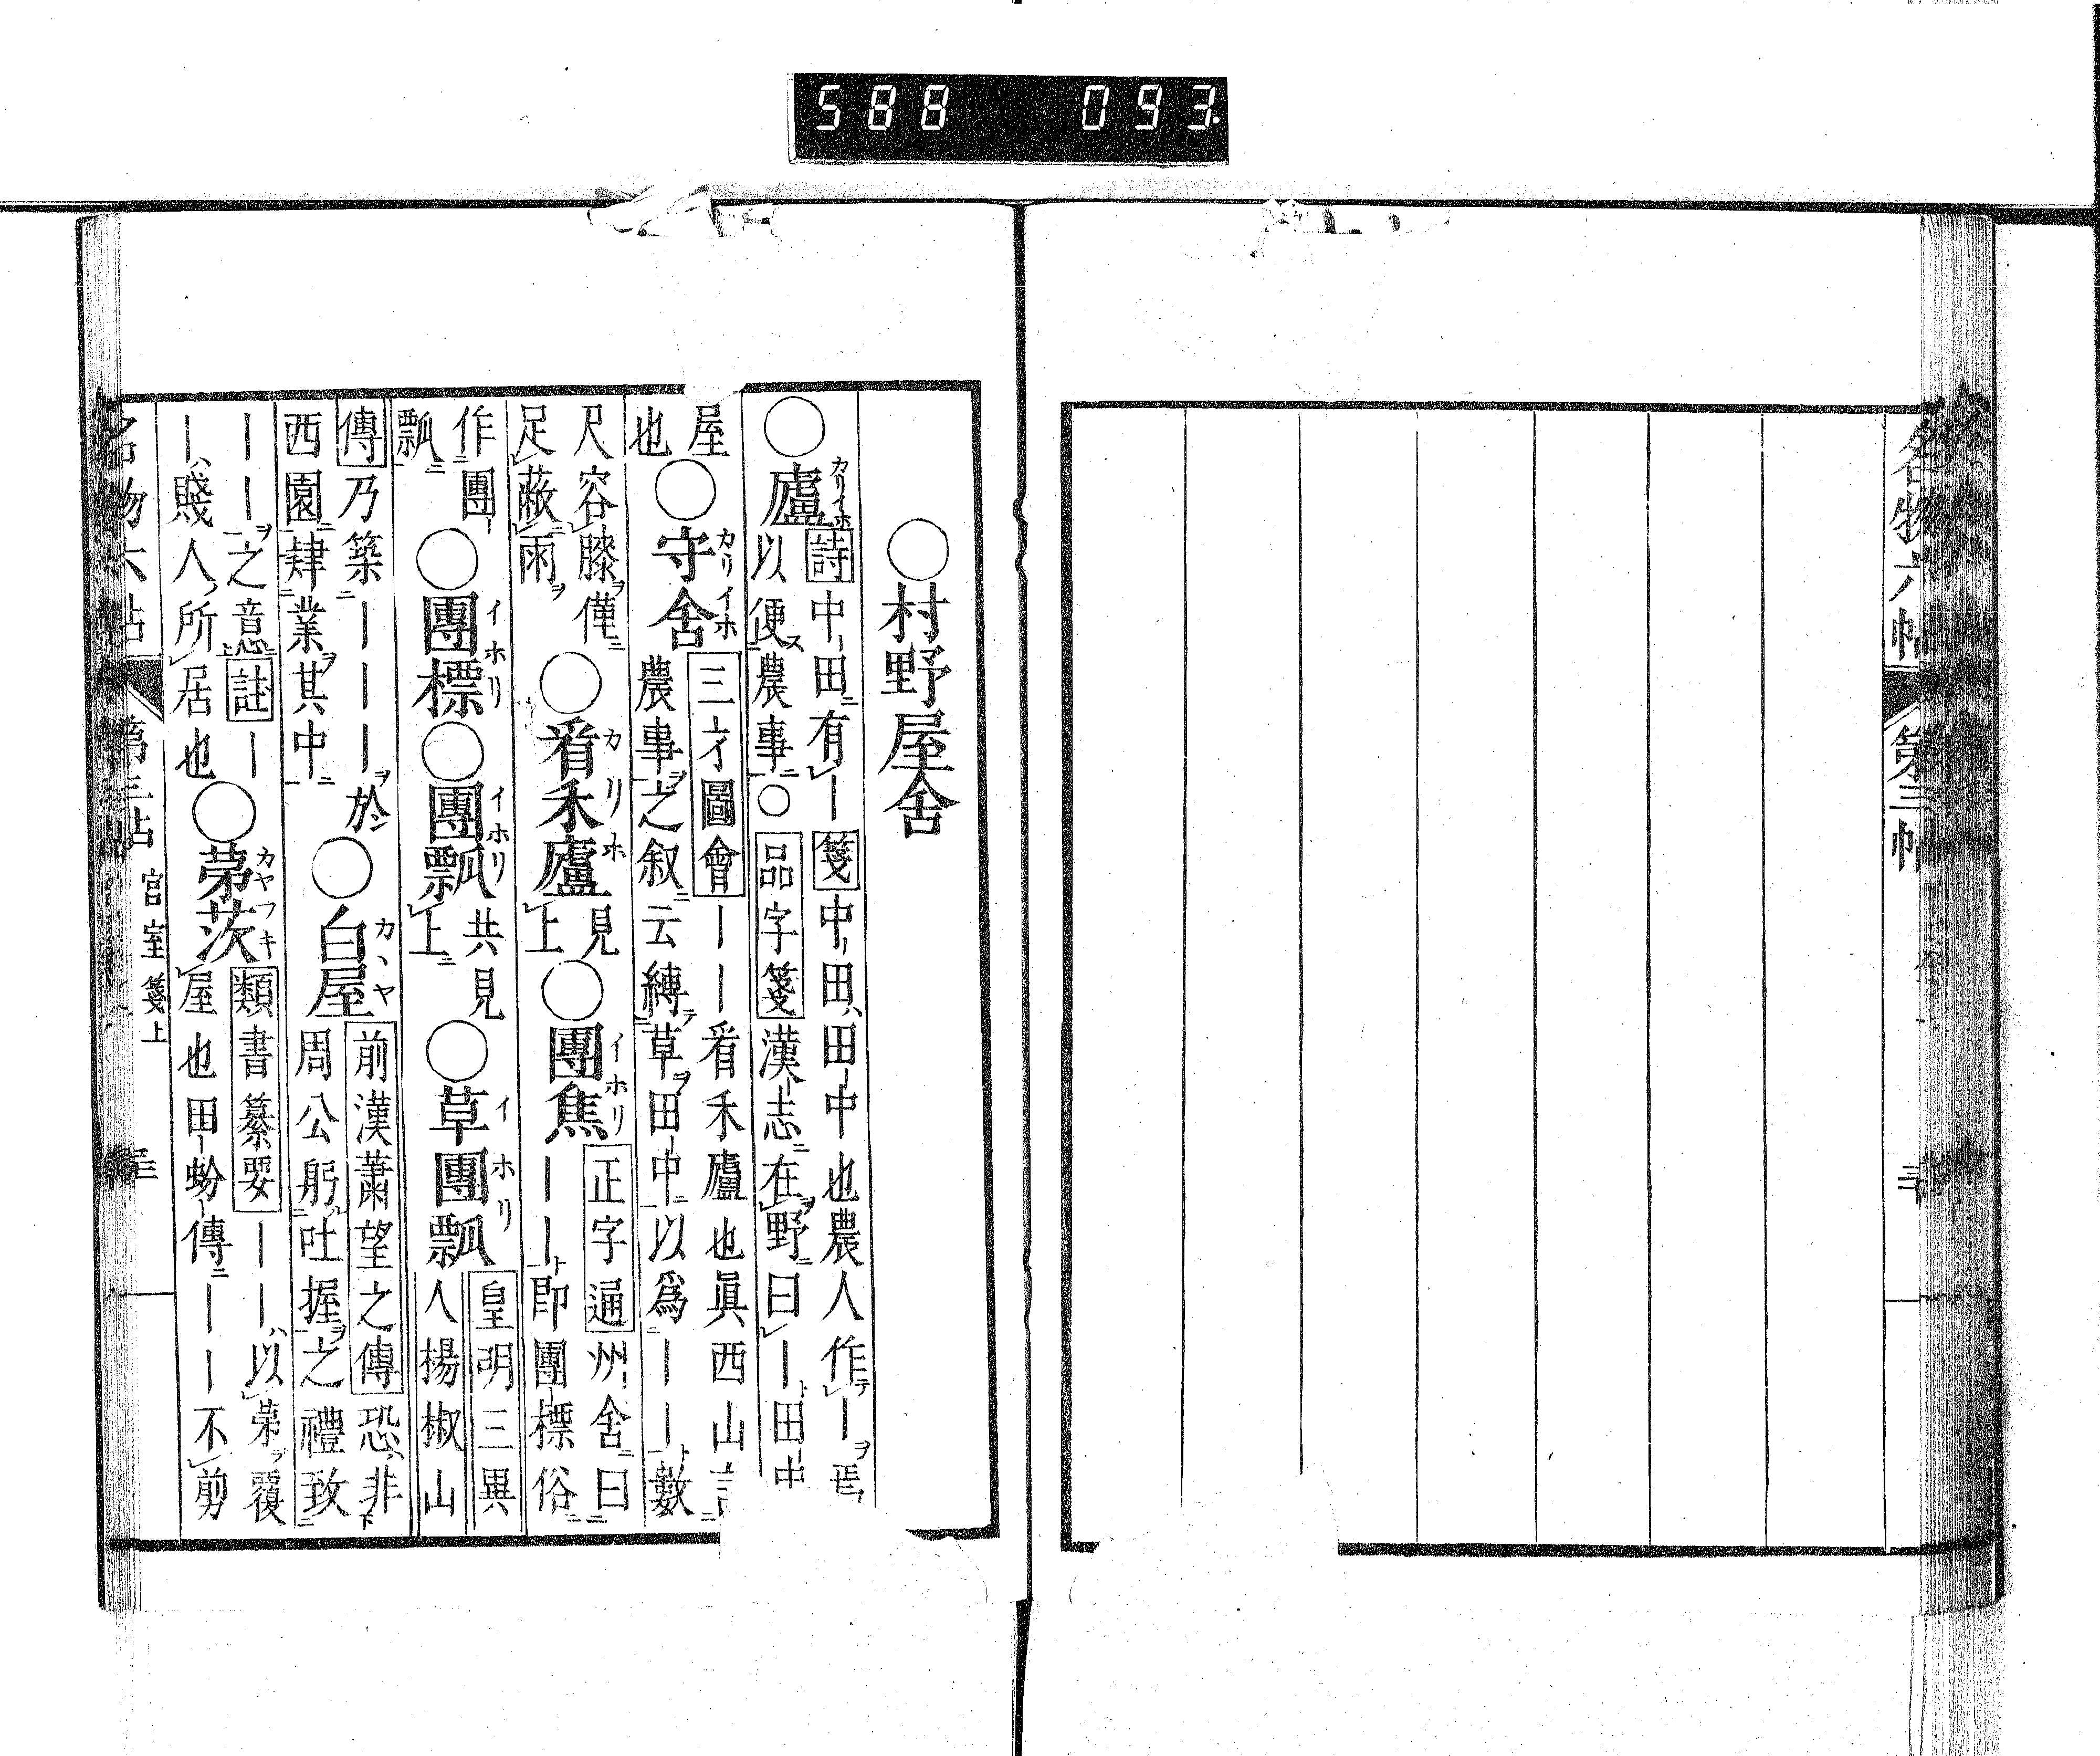 588 093.
名物六帖 第三帖
○村野屋舍
○廬カリイホ
詩中田有｜箋中田田中也農人作｜焉
以便農事○品字箋漢志在野曰｜田中
屋
也
○守舍カリイホ
三才圖會｜｜看禾廬也眞西山
農事之叙云縛草田中以爲｜｜數
尺容膝僅
足蔽雨
○看禾廬カリホ
見
上
○團焦イホリ
正字通州舍曰
｜｜卽團標俗
作團
瓢
○團標イホリ
○團瓢イホリ
共見
上
○草團瓢イホリ
皇明三異
人揚椒山
傳乃築｜｜｜於
西園肄業其中
○白屋カヽヤ
前漢蕭望之傳恐非
周公躬吐握之禮致
｜｜之意註｜
｜賤人所居也
○茅茨カヤフキ
類書纂要｜｜以茅覆
屋也田蚡傳｜｜不剪
名物六帖 第三帖 宮室箋上